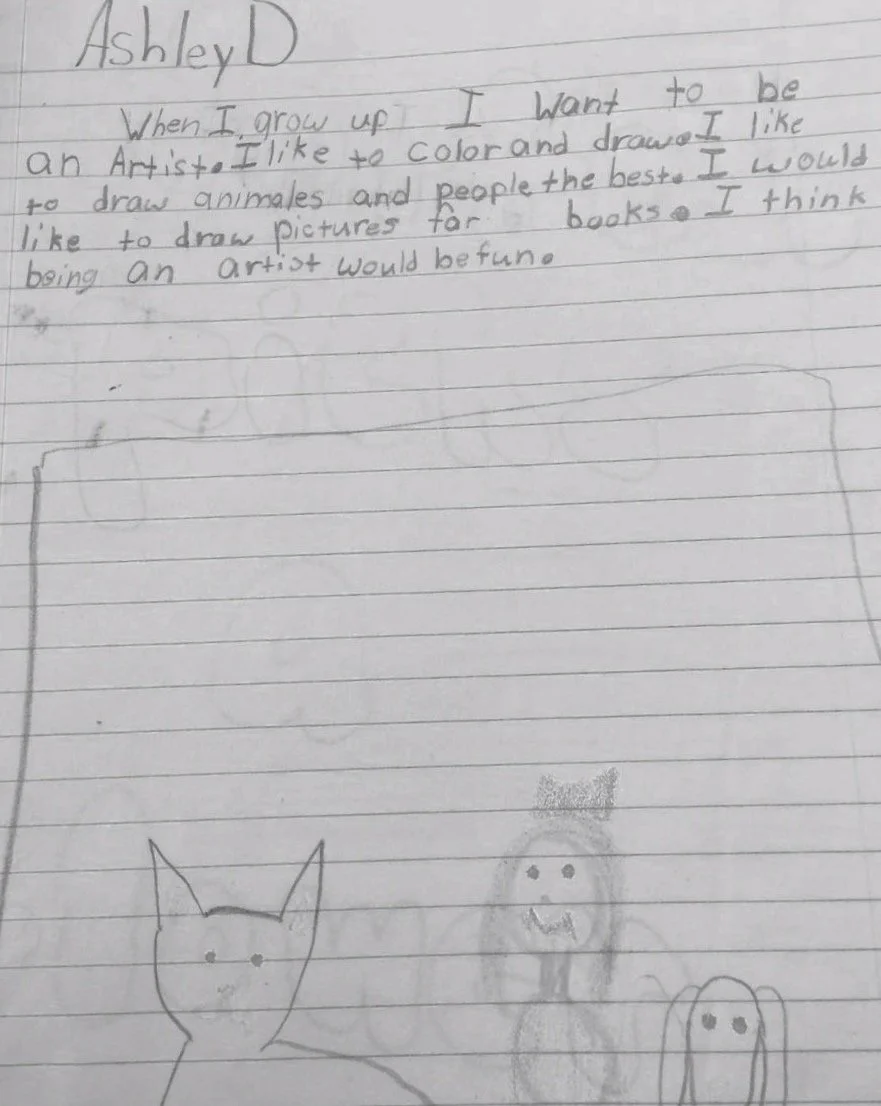 Ashley D
When I grow up I Want to be
an Artist. I like to color and draw. I like
to draw animales and people the best. I would
like to draw pictures for books. I think
being an artist would be fun.